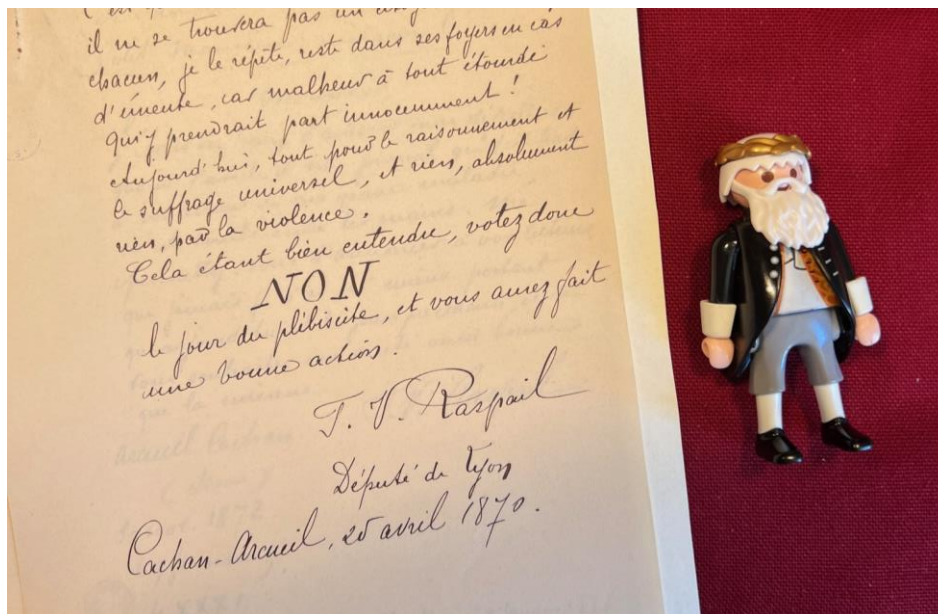 il ne se trouvera pas un
chacun, je le répète, reste dans ses foyers en cas
d'émeute, car malheur à tout étourdi
qui y prendrait part innocemment !
Aujourd'hui, tout pour le raisonnement et
le suffrage universel, et rien, absolument
rien, par la violence.
Cela étant bien entendu, votez donc
NON
le jour du plébiscite, et vous aurez fait
une bonne action.
F. V. Raspail
Député de Lyon
Cachan-Arcueil, 25 avril 1870.